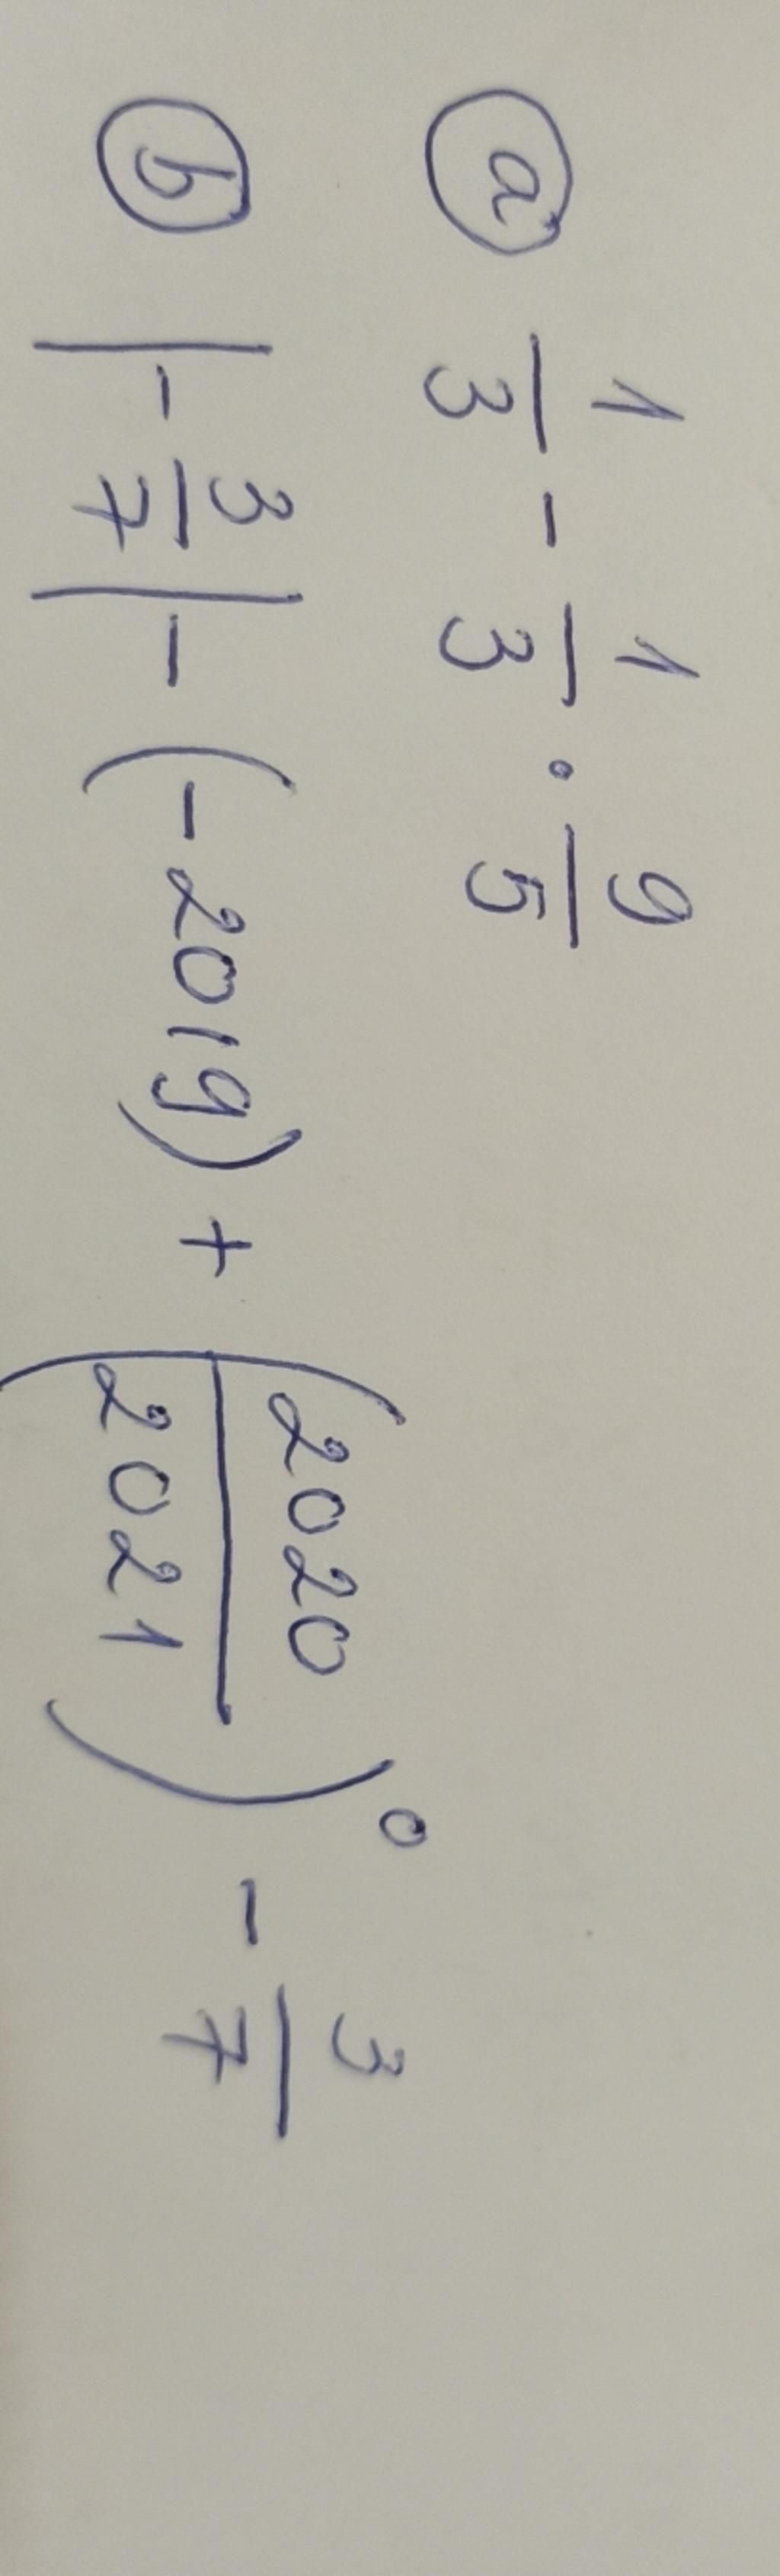 a 1/3 - 1/3 · 9/5
b |-3/7| - (-2019) + (2020/2021)^0 - 3/7